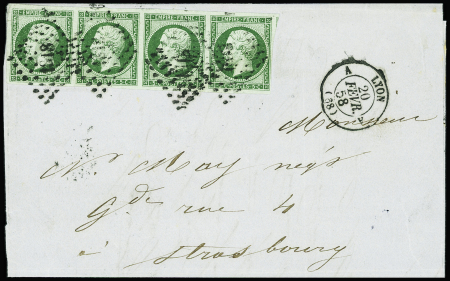 EMPIRE FRANC. EMPIRE FRANC. EMPIRE FRANC. EMPIRE FRANC.
LYON
A
20
FEVR.
58
(68)
Monsieur
Mr May négt
Gde rue 4
à Strasbourg